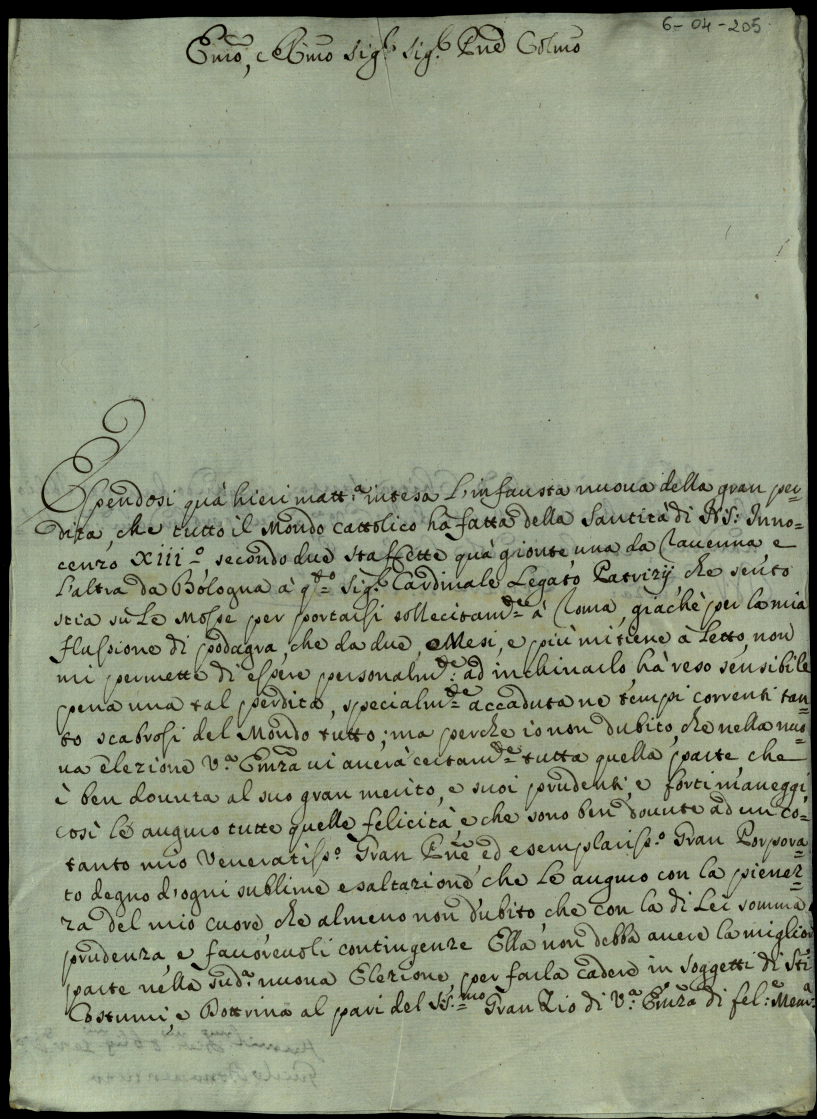 6-04-205
Emo, e Rmo Sig.r Sig.r Pne Colmo
Essendosi quà hieri matt.a intesa l'infausta nuova della gran per=
dita, che tutto il Mondo cattolico hà fatta della Santità di N.S: Inno=
cenzo XIII.o secondo due staffette quà gionte una da Ravenna e
l'altra da Bologna à q.sto Sig.r Cardinale Legato Patrizij che sento
stia sù le Mosse per portarsi sollecitam.te à Roma, giachè per la mia
flussione di podagra, che da due Mesi, e più mi tiene à letto, non
mi permette di essere personalm.te ad inchinarlo, hà reso sensibile
pena una tal perdita, specialm.te accaduta ne tempi correnti tan=
to scabrosi del Mondo tutto; ma perche io non dubito, che nella nuo=
va elezione V.a Emza vi averà certam.te tutta quella parte che
è ben dovuta al suo gran merito, e suoi prudenti, e forti maneggi,
così le auguro tutte quelle felicità, e che sono ben dovute ad un co=
tanto mio Veneratiss.o Gran Pne ed esemplariss.o Gran Porpora=
to degno d'ogni sublime esaltazione che le auguro con la pienez=
za del mio cuore che almeno non dubito che con la di Lei somma
prudenza e favorevoli contingenze Ella non debba avere la miglior
parte nella sud.a nuova Elezione, per farla cadere in soggetti di Sti
Costumi, e Dottrina al pari del SS.mo Gran Zio di V.a Emza di fel.e Mem.a